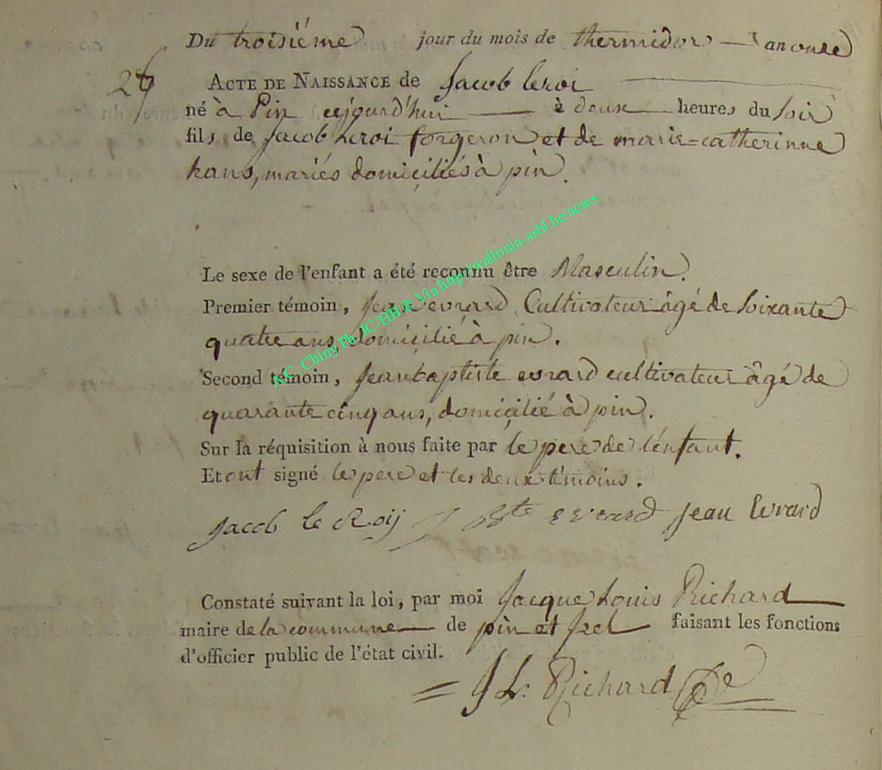 Du troisiéme jour du mois de thermidor — an onze
26
ACTE DE NAISSANCE de Jacob leroi
né à Pin aujourd'hui — à deux — heures du soir
fils de Jacob Leroi forgeron et de marie=catherinne
hans, mariés domiciliés à pin.
Le sexe de l'enfant a été reconnu être Masculin.
Premier témoin, Jean evrard Cultivateur âgé de soixante
quatre ans, domicilié à pin.
Second témoin, Jean baptiste evrard cultivateur âgé de
quarante cinq ans, domicilié à pin.
Sur la réquisition à nous faite par le pere de l'enfant.
Et ont signé le pere et les deux témoins.
Jacob le Roij J Bte evrard Jean Evrard
Constaté suivant la loi, par moi Jacque Louis Richard
maire de la commune — de pin et izel faisant les fonctions
d'officier public de l'état civil.
J L. Richard
A.C. Chiny Ph. JC/HH & Via http://wallonia-asbl.be/actes